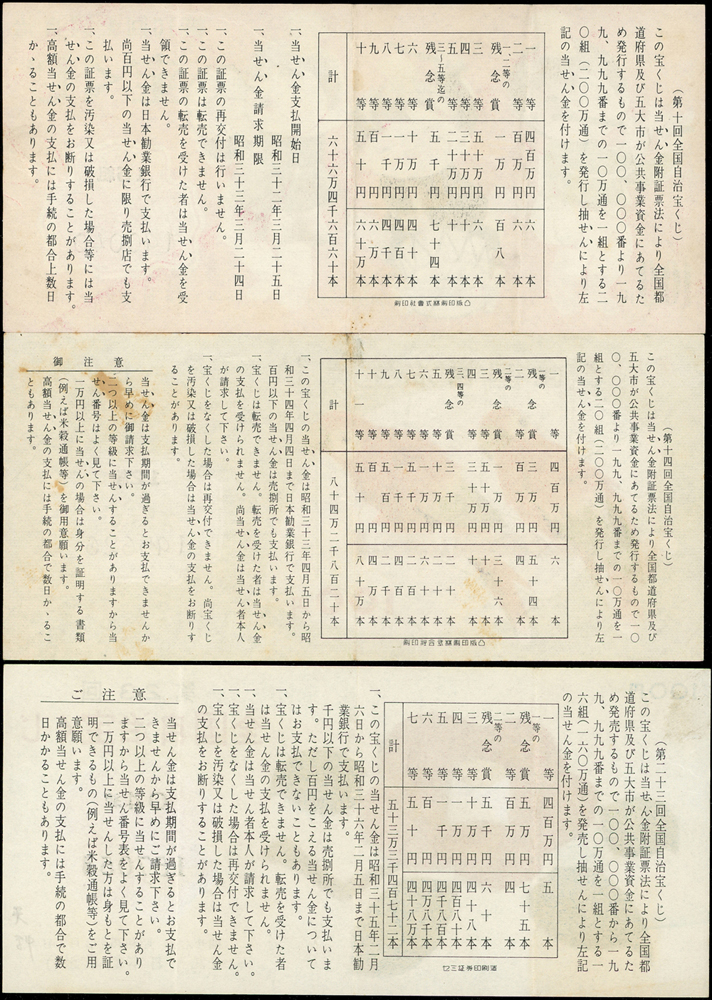 （第十回全国自治宝くじ）
この宝くじは当せん金附証票法により全国都
道府県及び五大市が公共事業資金にあてるた
め発行するもので一〇〇、〇〇〇番より一九
九、九九九番までの一〇万通を一組とする二
〇組（二〇〇万通）を発行し抽せんにより左
記の当せん金を付けます。
一等 四百万円 六本
二等
一、二等の残念賞 一万円 百八本
三等 五十万円
四等 二十万円
五等 十万円
三～五等迄の残念賞 五千円 七十四本
六等 一万円
七等
八等
九等 百円
十等 五十円 六十万本
計 六十六万四千六百六十本
凸版印刷株式会社印刷
一、当せん金支払開始日
昭和三十二年三月二十五日
一、当せん金請求期限
昭和三十三年三月二十四日
一、この証票の再交付は行いません。
一、この証票は転売できません。
一、この証票の転売を受けた者は当せん金を受
領できません。
一、当せん金は日本勧業銀行で支払います。
尚百円以下の当せん金に限り売捌店でも支
払います。
一、この証票を汚染又は破損した場合等には当
せん金の支払をお断りすることがあります。
一、高額当せん金の支払には手続の都合上数日
かゝることもあります。
（第十四回全国自治宝くじ）
この宝くじは当せん金附証票法により全国都道府県及び
五大市が公共事業資金にあてるため発行するもので一〇
〇、〇〇〇番より一九九、九九九番までの一〇万通を一
組とする二〇組（二〇〇万通）を発行し抽せんにより左
記の当せん金を付けます。
一等 四百万円 六本
一等の残念賞 三万円 五十四本
二等
二等の残念賞 一万円 三十六本
三等 五十万円
四等 三十万円
三、四等の残念賞 三千円
五等 十万円
六等 一万円
計 八十四万二千八百二十本
一、この宝くじの当せん金は昭和三十三年四月五日から昭
和三十四年四月四日まで日本勧業銀行で支払います。
百円以下の当せん金は売捌所でも支払います。
一、宝くじは転売できません。転売を受けた者は当せん金
の支払を受けられません。尚当せん金は当せん者本人
が請求して下さい。
一、宝くじをなくした場合は再交付できません。尚宝くじ
を汚染又は破損した場合は当せん金の支払をお断りす
ることがあります。
御注意
当せん金は支払期間が過ぎるとお支払できませんか
ら早めに御請求下さい。
二つ以上の等級に当せんすることがありますから当
せん番号はよく見て下さい。
一万円以上に当せんの場合は身分を証明する書類
（例えば米穀通帳等）を御用意願います。
高額当せん金の支払には手続の都合で数日かゝるこ
ともあります。
（第二十三回全国自治宝くじ）
この宝くじは当せん金附証票法により全国都
道府県及び五大市が公共事業資金にあてるた
め発売するもので一〇〇、〇〇〇番から一九
九、九九九番までの一〇万通を一組とする一
六組（一六〇万通）を発売し抽せんにより左記
の当せん金を付けます。
一等 四百万円 五本
一等の残念賞
二等 百万円
二等の残念賞 五千円
三等 十万円
四等 一万円
五等 千円
六等 百円
七等 五十円 四十八万本
計 五十三万二千四百七十二本
一、この宝くじの当せん金は昭和三十五年二月
六日から昭和三十六年二月五日まで日本勧
業銀行で支払います。
千円以下の当せん金は売捌所でも支払いま
す。ただし百円をこえる当せん金について
はお支払できないこともあります。
一、宝くじは転売できません。転売を受けた者
は当せん金の支払を受けられません。
一、当せん金は当せん者本人が請求して下さい。
一、宝くじをなくした場合は再交付できません。
一、宝くじを汚染又は破損した場合は当せん金
の支払をお断りすることがあります。
ご注意
当せん金は支払期間が過ぎるとお支払で
きませんから早めにご請求下さい。
二つ以上の等級に当せんすることがあり
ますから当せん番号表をよく見て下さい。
一万円以上に当せんした方は身もとを証
明できるもの（例えば米穀通帳等）をご用
意願います。
高額当せん金の支払には手続の都合で数
日かかることもあります。